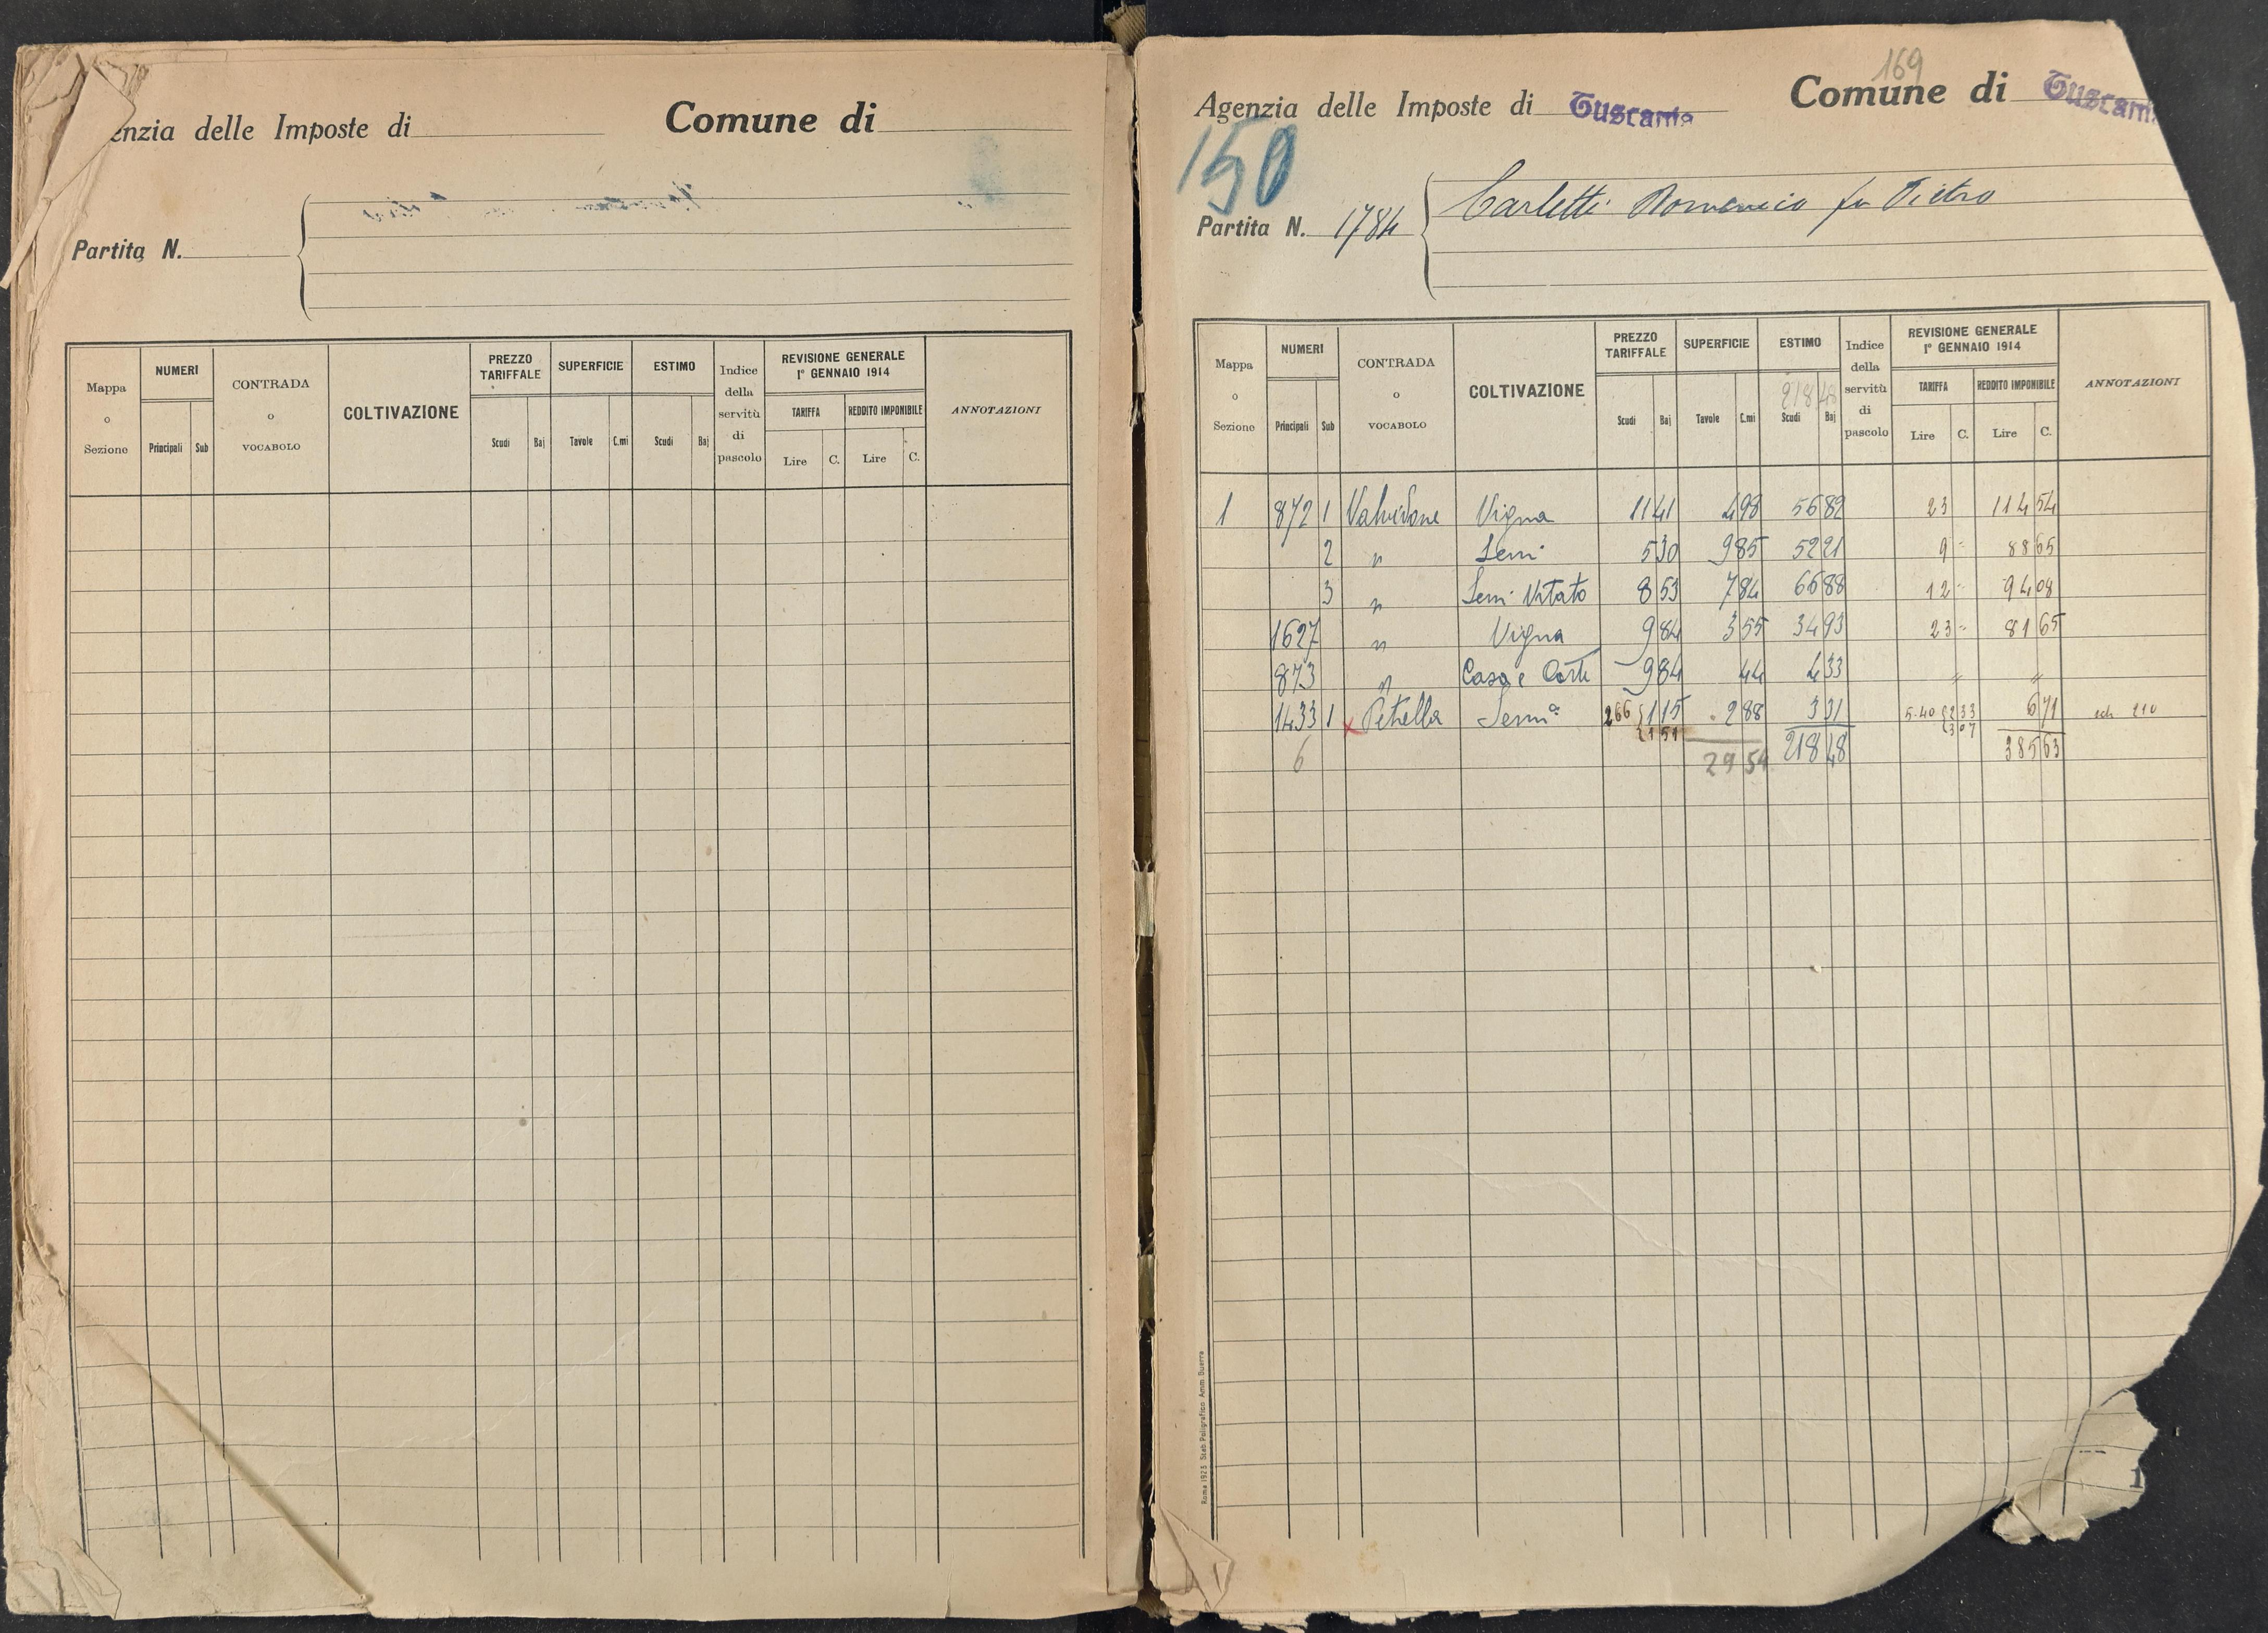 enzia delle Imposte di Comune di
Partita N.
Mappa o Sezione NUMERI Principali Sub CONTRADA o VOCABOLO COLTIVAZIONE PREZZO TARIFFALE Scudi Baj SUPERFICIE Tavole C.mi ESTIMO Scudi Baj Indice della servitù di pascolo REVISIONE GENERALE 1º GENNAIO 1914 TARIFFA Lire C. REDDITO IMPONIBILE Lire C. ANNOTAZIONI
169
Agenzia delle Imposte di Tuscania Comune di Tuscani
150
Partita N. 1784 Carletti Domenico fu Pietro
Mappa o Sezione NUMERI Principali Sub CONTRADA o VOCABOLO COLTIVAZIONE PREZZO TARIFFALE Scudi Baj SUPERFICIE Tavole C.mi ESTIMO 218 48 Scudi Baj Indice della servitù di pascolo REVISIONE GENERALE 1º GENNAIO 1914 TARIFFA Lire C. REDDITO IMPONIBILE Lire C. ANNOTAZIONI
1 872 1 Valvidone Vigna 11 41 4 98 56 82 23 114 54
2 " Semi. 5 30 9 85 52 21 9 = 88 65
3 " Semi. Vitato 8 53 7 84 66 88 12 = 94 08
1627 " Vigna 9 84 3 55 34 93 23 = 81 65
873 " Casa e Corte 9 84 44 4 33 " "
1433 1 x Petrella Semi.e 266 1 15 2 88 3 31 5.40 2 33 6 71 ich. 210
1 51 3 07
6 29 54 218 48 385 63
Roma 1925 Stab Poligrafico Amm. Guerra